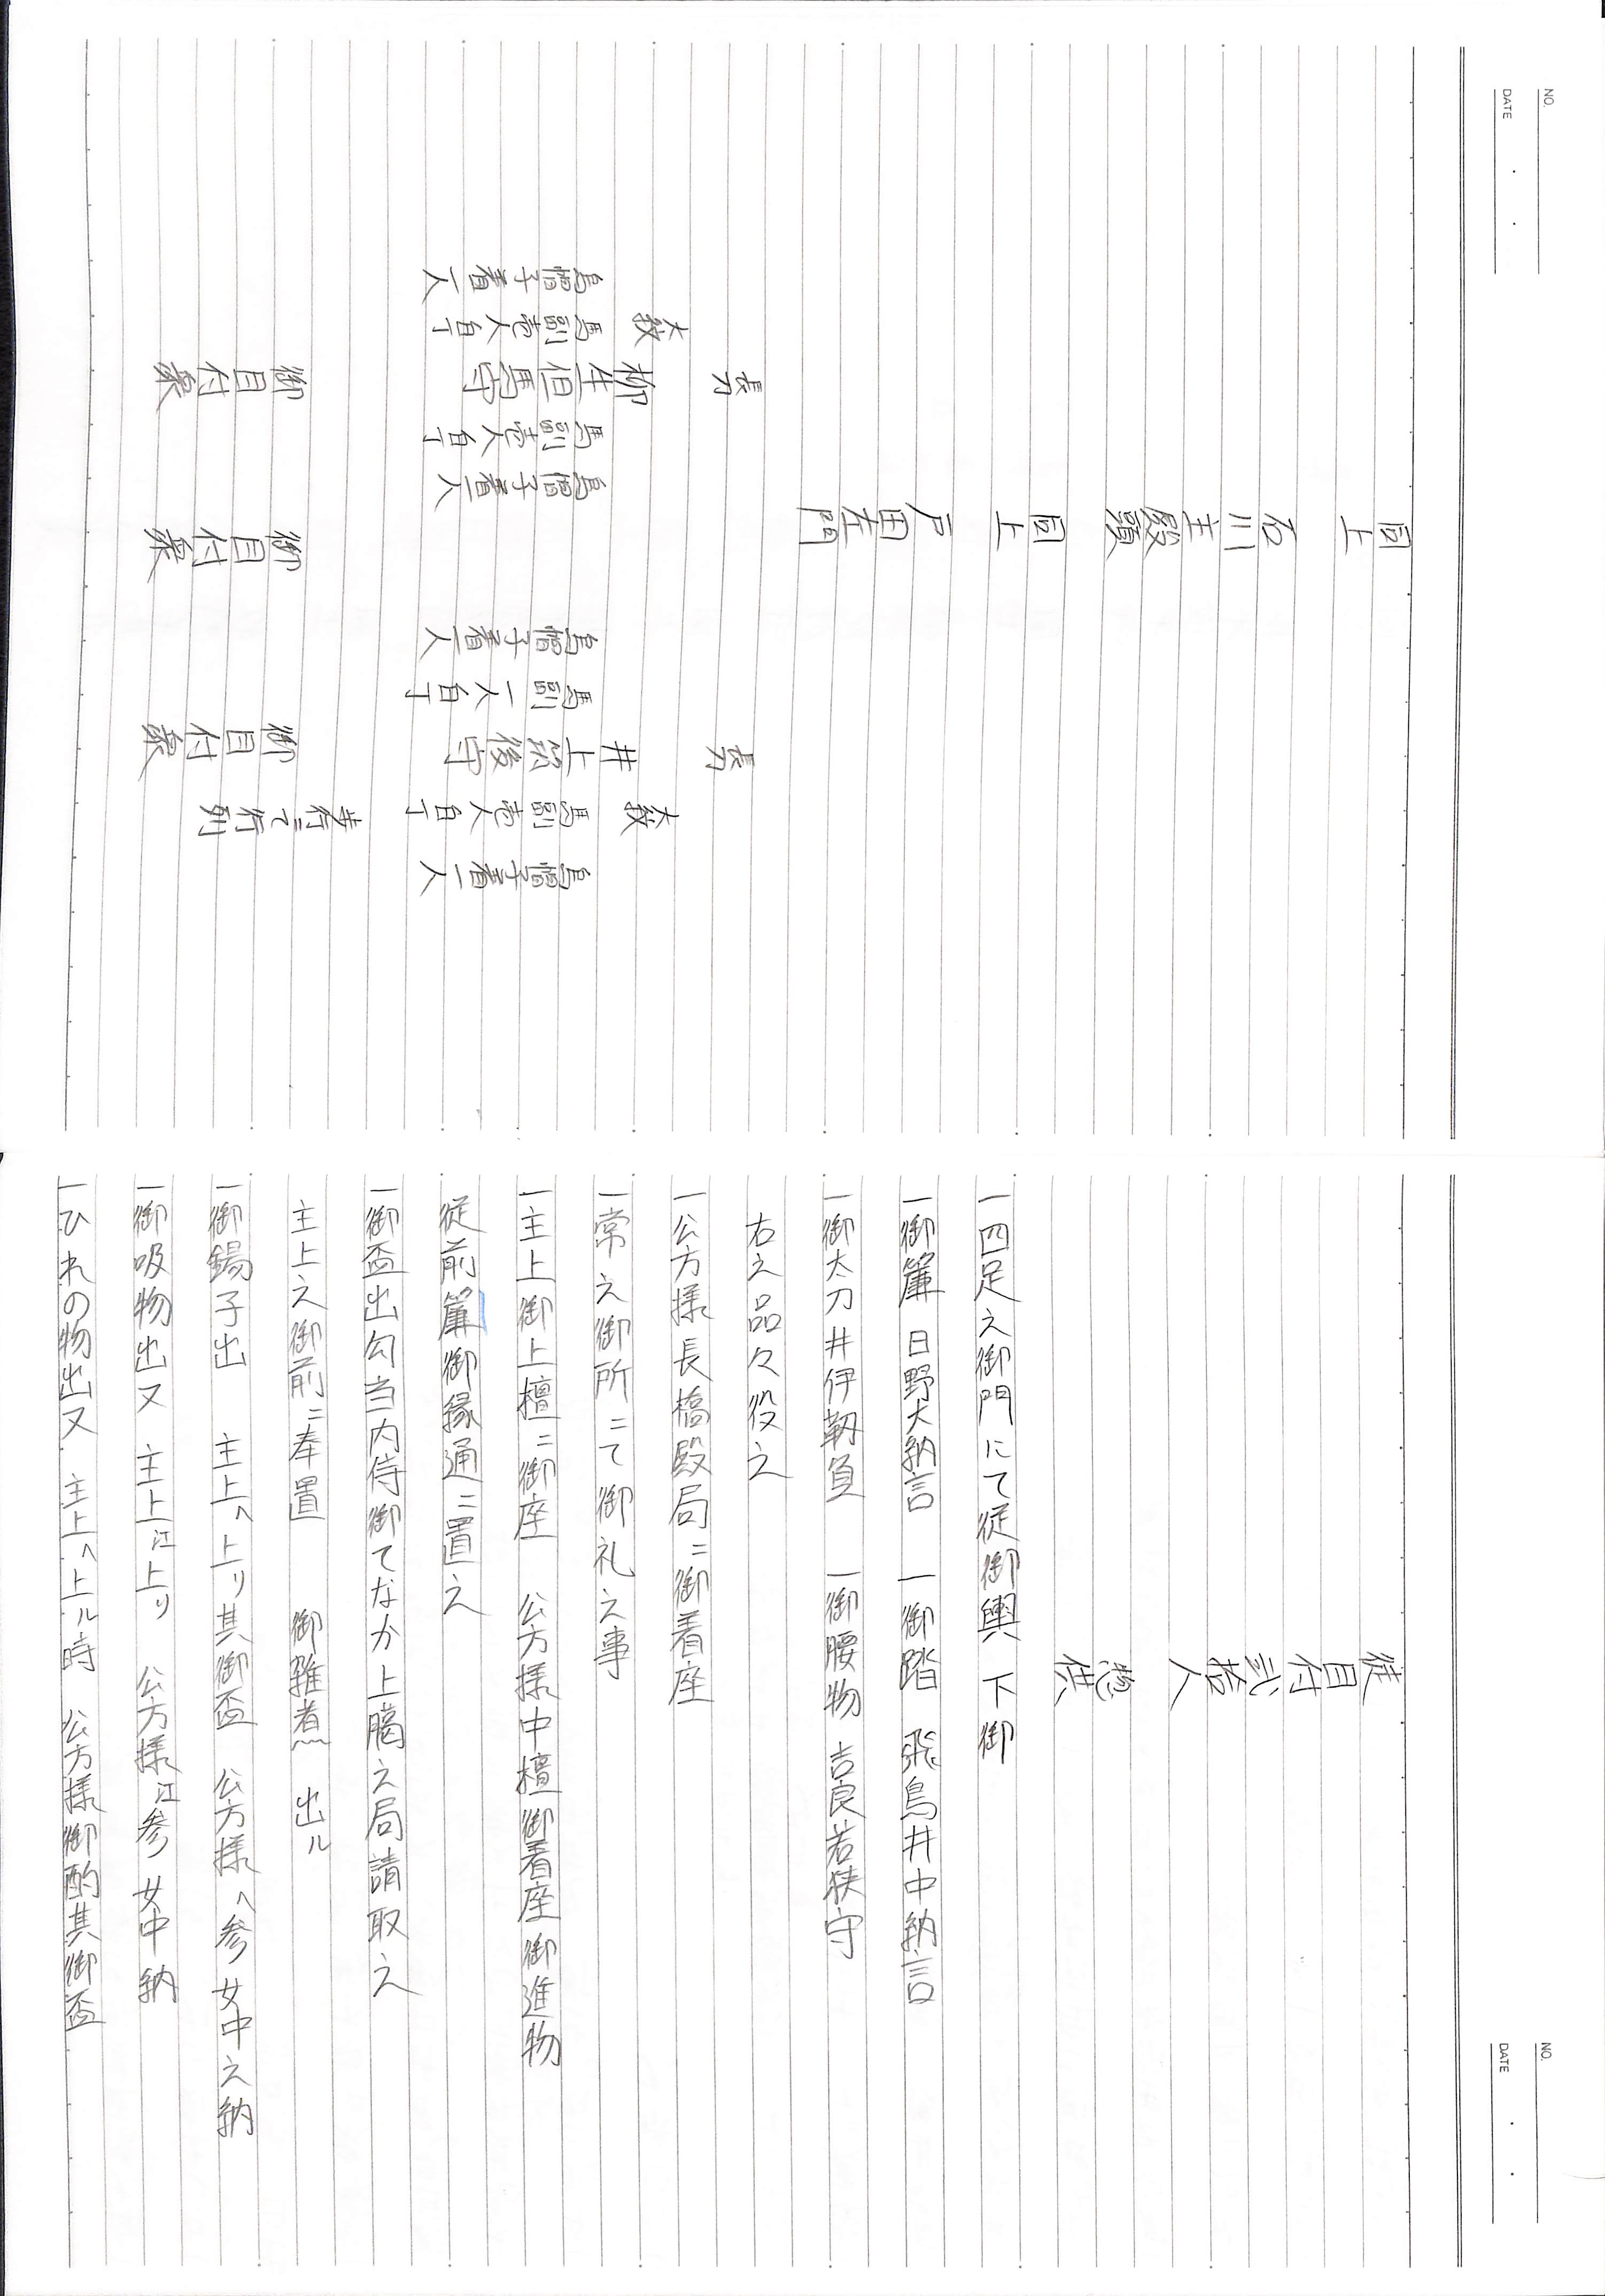 NO.
DATE
同上 石川主殿頭 同上 戸田左門
烏帽子着一人
大紋 馬副壱人白丁
長刀 柳生但馬守 御目付衆
馬副壱人白丁
烏帽子着一人
御目付衆
烏帽子着一人
馬副一人白丁
長刀 井上筑後守 御目付衆
大紋 馬副壱人白丁 歩行ニて行列
烏帽子着一人
NO.
DATE
徒目付弐拾人 惣供
一四足之御門にて従御輿 下御
一御簾 日野大納言 一御踏 飛鳥井中納言
一御太刀井伊靱負 一御腰物 吉良若狭守
右之品々役之
一公方様長橋殿局ニ御着座
一常之御所ニて御礼之事
一主上御上檀ニ御座 公方様中檀御着座御進物
従前簾御縁通ニ置之
一御盃出勾当内侍御てなか上臈之局請取之
主上之御前ニ奉置 御雑煮 出ル
一御錫子出 主上へ上リ其御盃 公方様へ参女中之納
一御吸物出又 主上江上リ 公方様江参女中納
一ひれの物出又 主上へ上ル時 公方様御酌其御盃